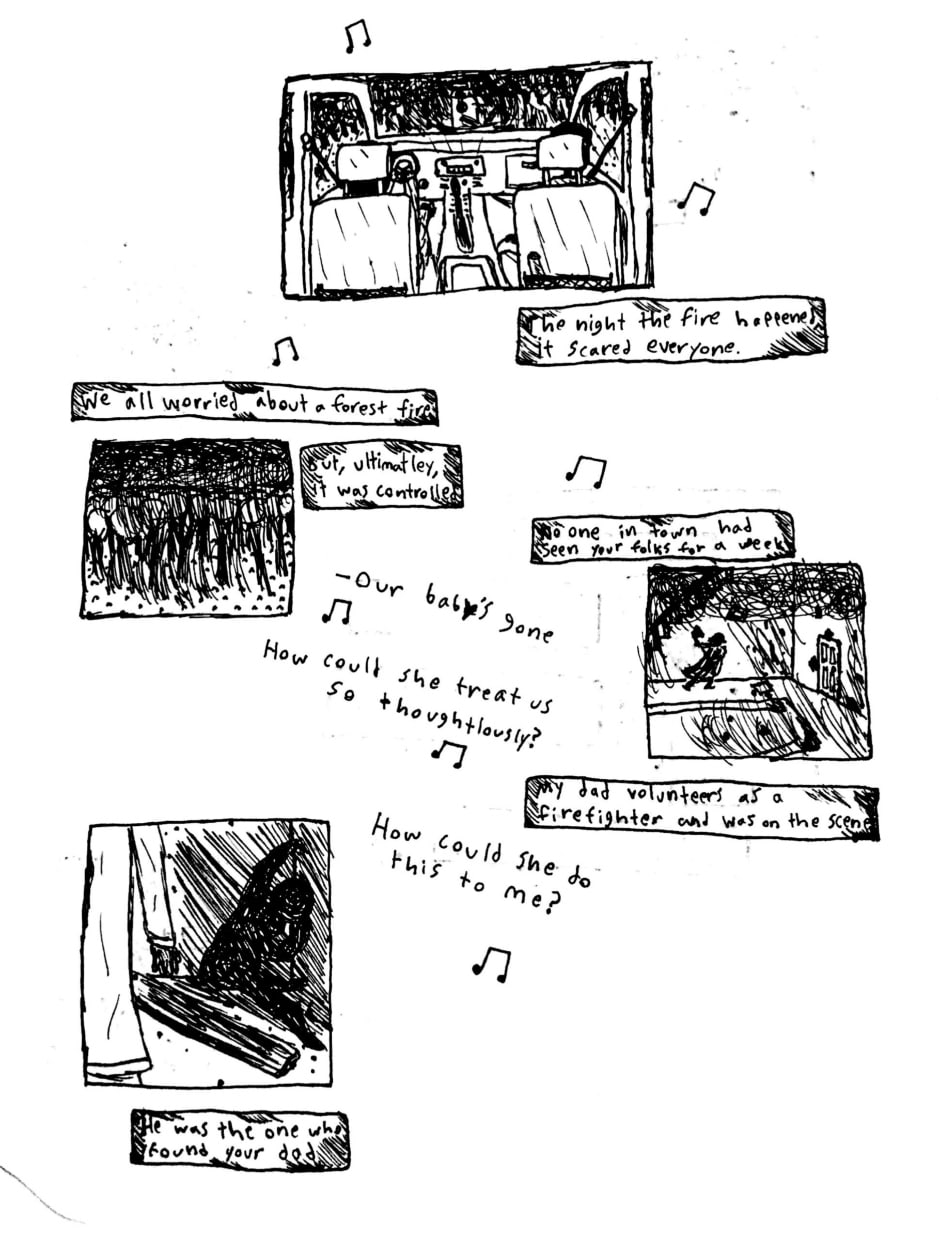 The night the fire happened
it scared everyone.
We all worried about a forest fire
But, ultimatley,
it was controlled
No one in town had
seen your folks for a week
-Our baby's gone
How could she treat us
so thoughtlously?
My dad volunteers as a
firefighter and was on the scene
How could she do
this to me?
He was the one who
found your dad